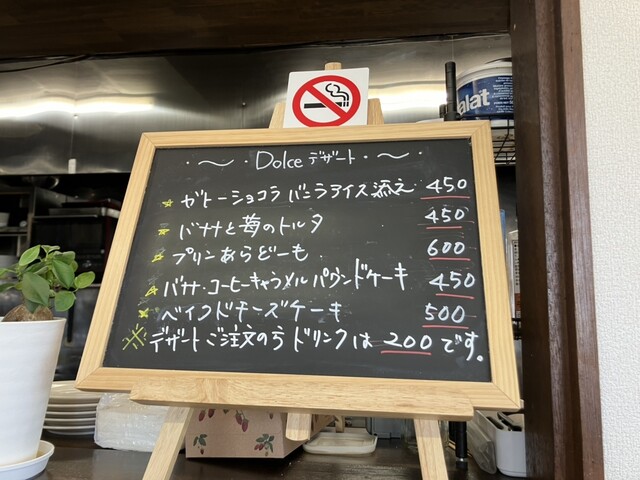 〜・Dolce デザート・〜
☆ ガトーショコラ バニラアイス添え 450
☆ バナナと苺のトルタ 450
☆ プリンあらどーも 600
☆ バナナ・コーヒーキャラメルパウンドケーキ 450
☆ ベイクドチーズケーキ 500
※デザートご注文の方ドリンクは200です。
alat